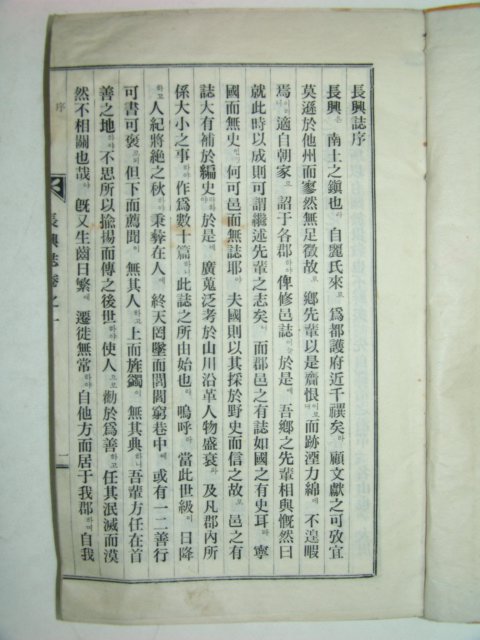 長興誌序
長興은南土之鎭也라自麗氏來로爲都護府近千禩矣라顧文獻之可攷宜
莫遜於他州而寥然無足徵故로鄕先輩以是齎恨이로대而跡湮力綿에不遑暇
焉이러니適自朝家로詔于各郡하야俾修邑誌일새於是에吾鄕之先輩相與慨然曰
就此時以成則可謂繼述先輩之志矣리니而郡邑之有誌如國之有史耳라寧
國而無史언정何可邑而無誌耶아夫國則以其採於野史而信之故로邑之有
誌大有補於編史하야於是에廣蒐泛考於山川沿革人物盛衰와及凡郡內所
係大小之事하야作爲數十篇하니此誌之所由始也라嗚呼라當此世級이日降
하고人紀將絶之秋하야秉彛在人에終天罔墜而閭閻窮巷中에或有一二善行
可書可褒이나但下而薦聞이無其人하고上而旌蠲이無其典하니吾輩方任在首
善之地하야不思所以揄揚而傳之後世하야使人으로勸於爲善하고任其泯滅而漠
然不相關也哉아旣又生齒日繁에遷徙無常하야自他方而居于我郡하며自我
序
長興誌卷之一
一